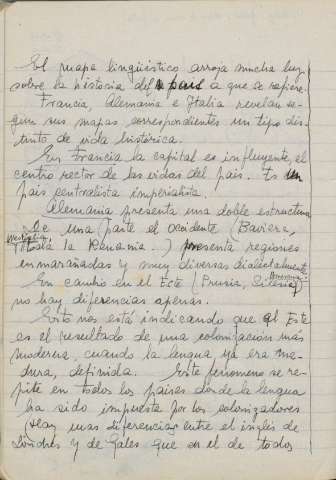 El mapa lingüístico arroja mucha luz
sobre la historia del pais a que se refiere.
Francia, Alemania e Italia revelan se-
gún sus mapas correspondientes un tipo dis-
tinto de vida histórica.
En Francia la capital es influyente, el
centro rector de las vidas del pais. Es un
pais centralista imperialista.
Alemania presenta una doble estructura
De una parte el occidente (Baviera,
Westfalia
toda la Renania.) presenta regiones
enmarañadas y muy diversas dialectalmente.
En cambio en el Este (Prusia, Silesia
no hay diferencias apenas.
Esto nos está indicando que el Este
es el resultado de una colonización más
moderna, cuando la lengua ya era ma-
dura, definida. Este fenomeno se re-
pite en todos los paises donde la lengua
ha sido impuesta por los colonizadores
(Hay mas diferencias entre el inglés de
Londres y de Gales que en el de todos